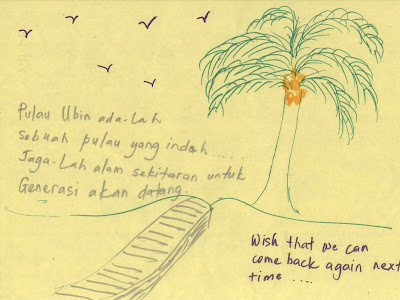 Pulau Ubin ada-Lah
sebuah pulau yang indah.....
Jaga-Lah alam sekitaran untuk
Generasi akan datang.
Wish that we can
come back again next
time ....